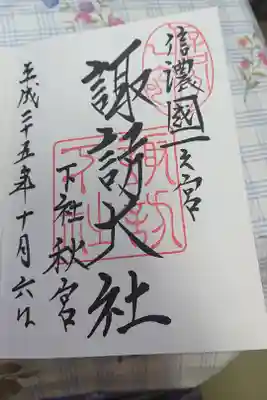 信濃國一之宮
諏訪大社
下社秋宮
平成二十五年十月六日